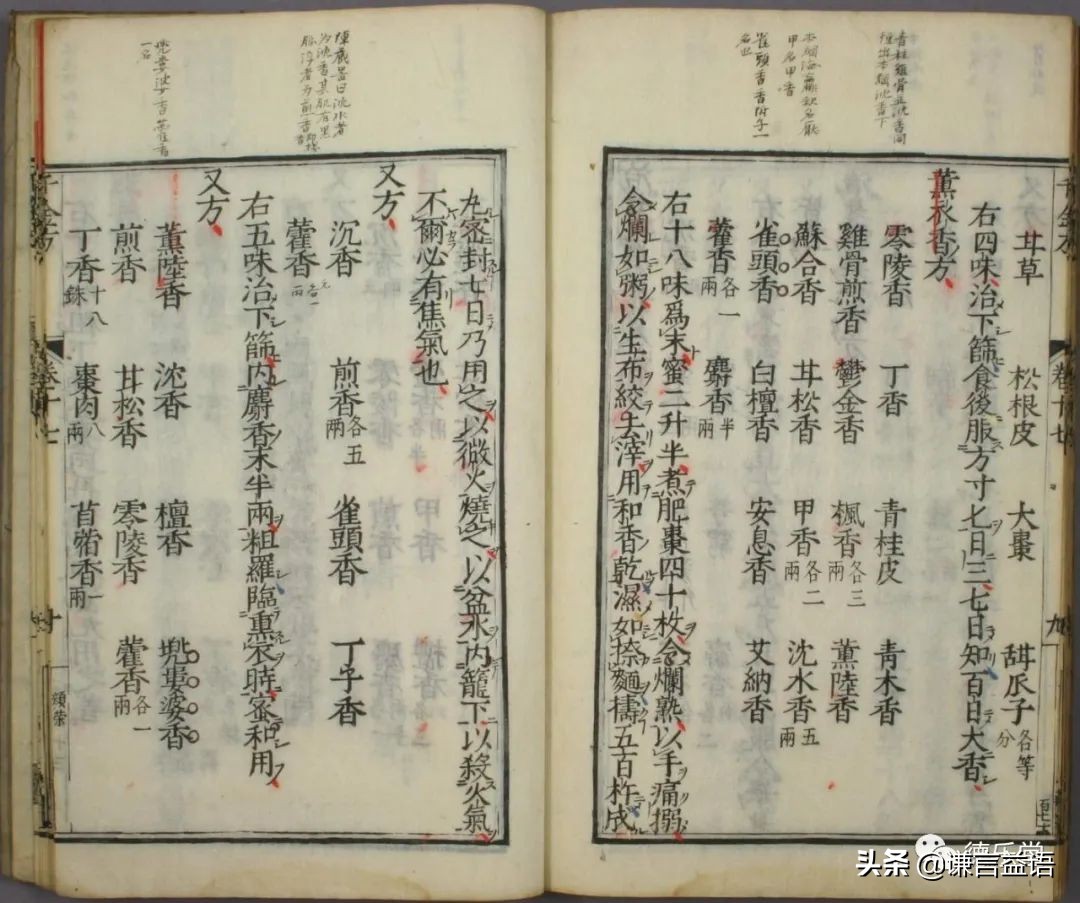 甘草　松根皮　大棗　甜瓜子各等分
右四味治下篩食後服方寸匕日三七日知百日大香
薰衣香方
零陵香　丁香　青桂皮　青木香
雞骨煎香　鬱金香　楓香各三兩　薰陸香
蘇合香　甘松香　甲香各二兩　沈水香五兩
雀頭香　白檀香　安息香　艾納香
藿香各一兩　麝香半兩
右十八味爲末蜜二升半煮肥棗四十枚令爛熟以手痛搦
令爛如粥以生布絞去滓用和香乾濕如捺麵擣五百杵成
丸密封七日乃用之以微火燒之以盆水內籠下以殺火氣
不爾必有焦氣也
又方
沉香　煎香各五兩　雀頭香　丁子香
藿香各一兩
右五味治下篩內麝香末半兩粗羅臨熏衣時蜜和用
又方
薰陸香　沈香　檀香　兜婁婆香
煎香　甘松香　零陵香　藿香各一兩
丁香十八銖　棗肉八兩　苜蓿香一兩
青桂雞骨並沈香同
種出本綱沈香下
甲名甲香
雀頭香香附子一
名也
陳藏器曰沈水者
為沈香其肌有黑
脈浮者為煎香
兜婁婆香藿香
一名
千金方
卷十七
卷十七
九
十
德乐堂
头条 @谦言益语